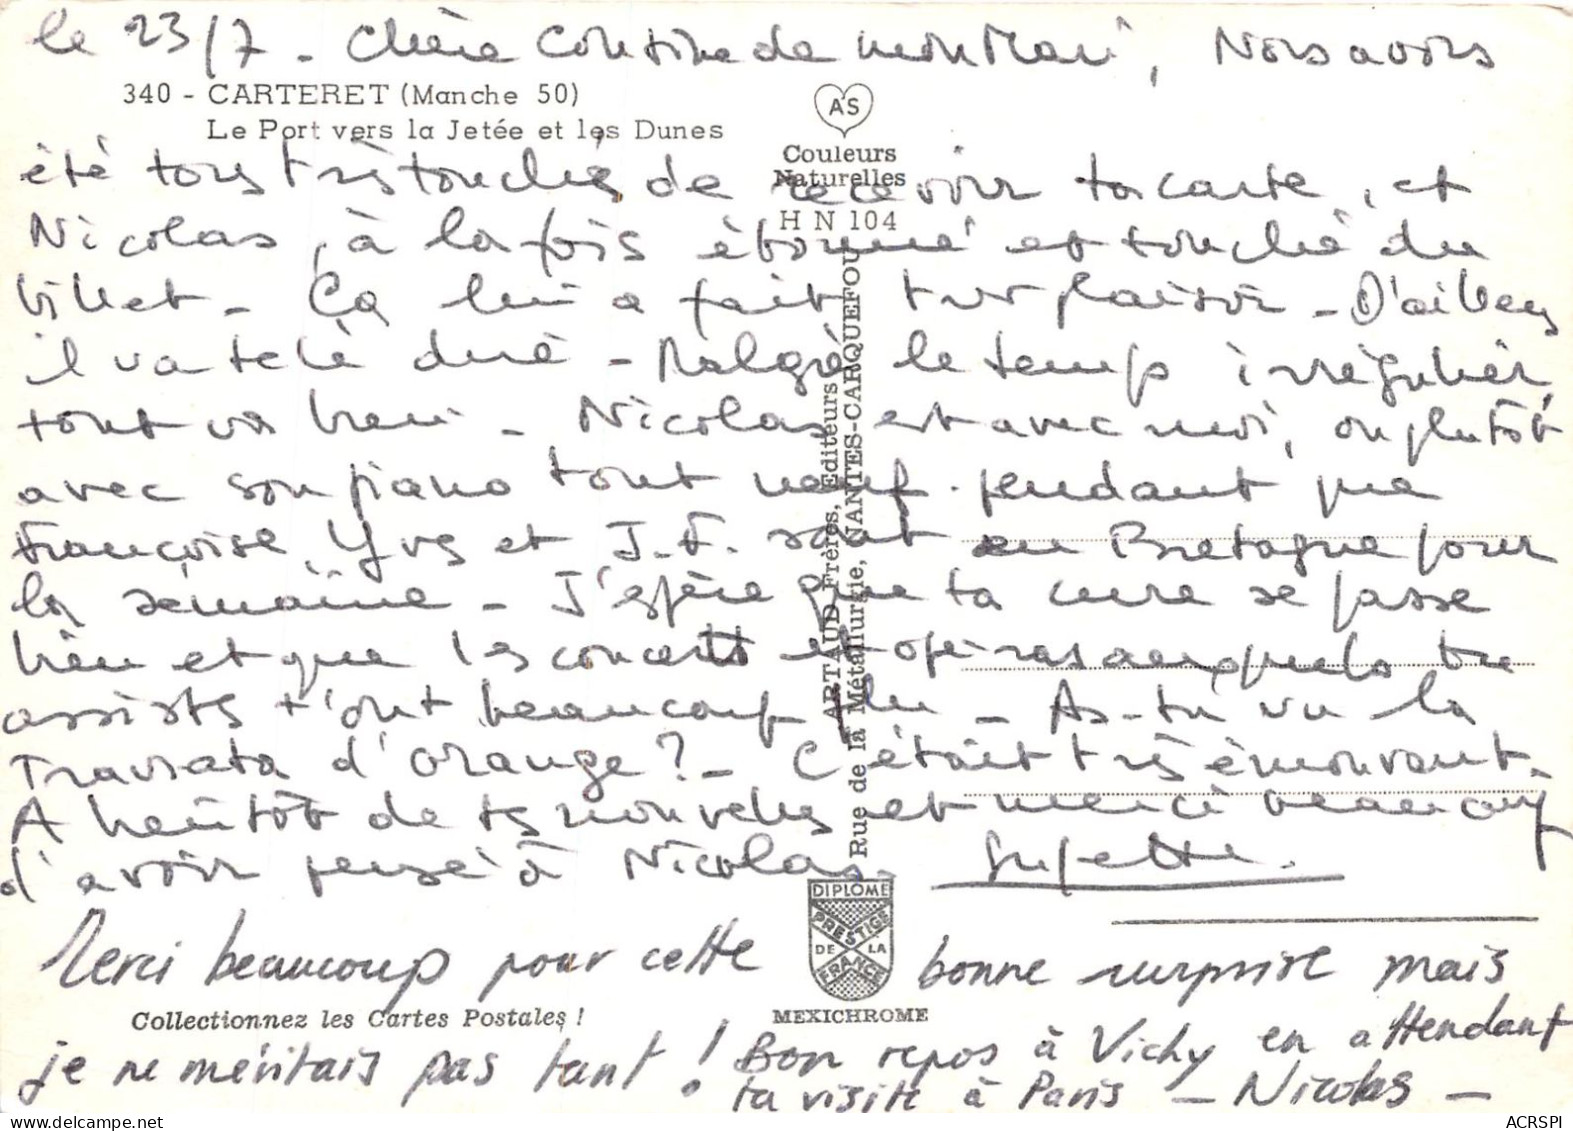 le 23/7 - Chère Cousine de mon Mari, Nous avons
340 - CARTERET (Manche 50)
Le Port vers la Jetée et les Dunes
AS
Couleurs
Naturelles
H N 104
été tous très touchés de recevoir ta carte, et
Nicolas, à la fois étonné et touché du
billet - Ça lui a fait  plaisir - D'ailleurs
il va  - Malgré le temps irrégulier,
tout va bien - Nicolas est avec moi, ou plutôt
avec son piano tout neuf. pendant que
Françoise, Yves et J.F. sont en Bretagne pour
la semaine - J'espère que ta cure se passe
bien et que les concerts et opéras auxquels tu
assistes t'ont beaucoup plu - As-tu vu la
Traviata d'Orange? - C'était très émouvant.
A bientôt de tes nouvelles et merci beaucoup
d'avoir pensé à Nicolas.
ARTAUD Frères, Editeurs
Rue de la Métallurgie, NANTES-CARQUEFOU
DIPLOME
PRESTIGE
DE LA
FRANCE
Merci beaucoup pour cette bonne surprise mais
Collectionnez les Cartes Postales !
MEXICHROME
je ne méritais pas tant ! Bon repos à Vichy en attendant
ta visite à Paris - Nicolas -
ACRSPI